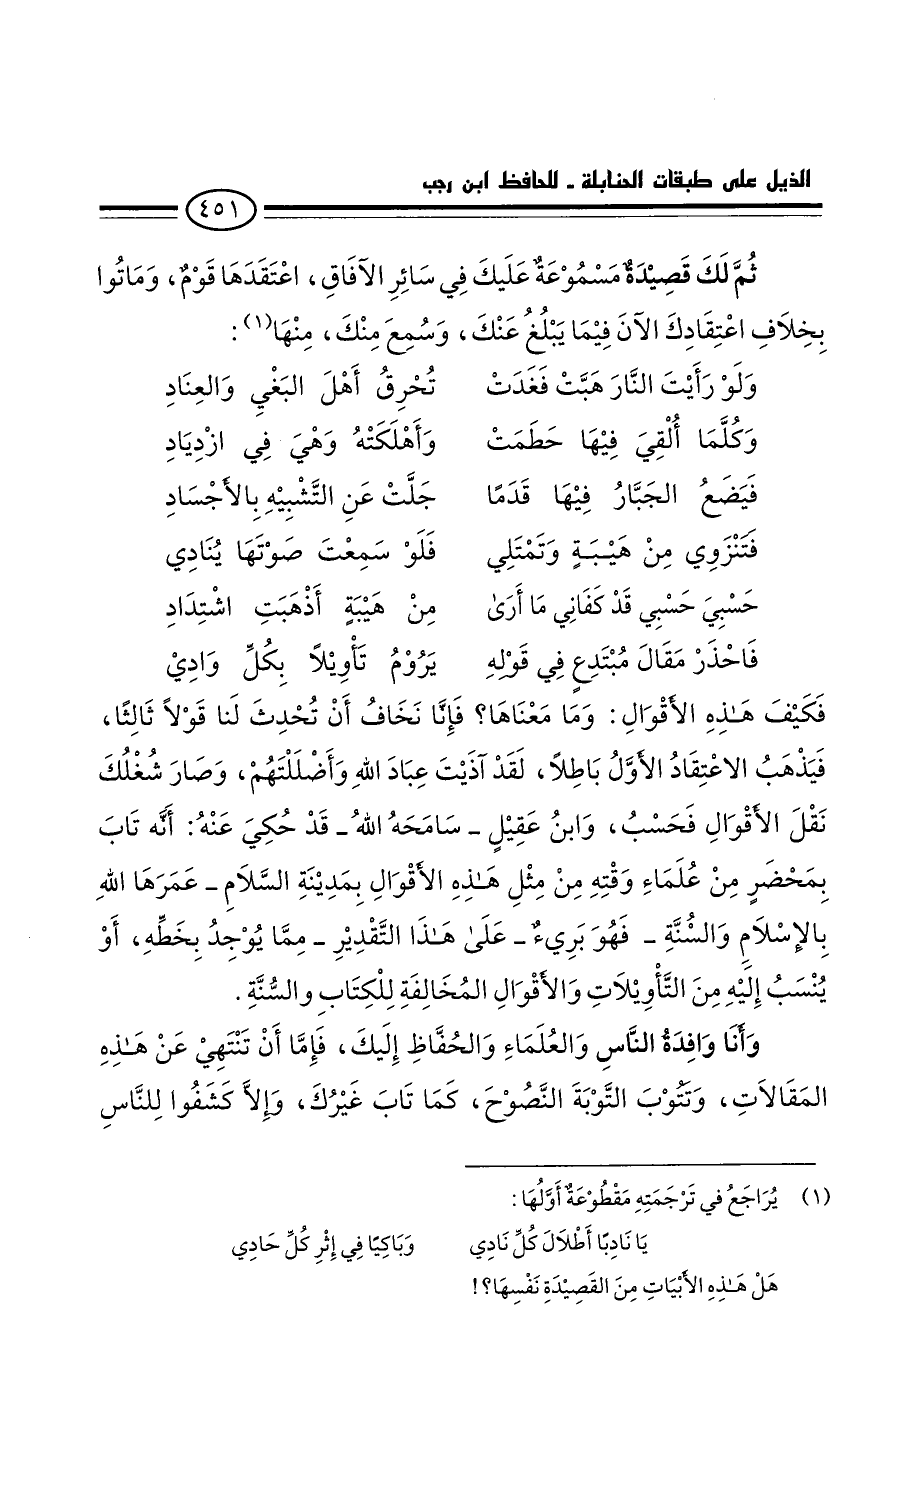 الذيل على طبقات الحنابلة - للحافظ ابن رجب
٤٥١
ثُمَّ لَكَ قَصِيْدَةٌ مَسْمُوْعَةٌ عَلَيكَ فِي سَائِرِ الآفَاقِ، اعْتَقَدَهَا قَوْمٌ، وَمَاتُوا
بِخِلَافِ اعْتِقَادِكَ الآنَ فِيْمَا يَبْلُغُ عَنْكَ، وَسُمِعَ مِنْكَ، مِنْهَا(١):
وَلَوْ رَأَيْتَ النَّارَ هَبَّتْ فَغَدَتْ تُحْرِقُ أَهْلَ البَغْيِ وَالعِنَادِ
وَكُلَّمَا أُلْقِيَ فِيْهَا حَطَمَتْ وَأَهْلَكَتْهُ وَهْيَ فِي ازْدِيَادِ
فَيَضَعُ الجَبَّارُ فِيْهَا قَدَمًا جَلَّتْ عَنِ التَّشْبِيْهِ بِالأَجْسَادِ
فَتَنْزَوِي مِنْ هَيْبَةٍ وَتَمْتَلِي فَلَوْ سَمِعْتَ صَوْتَهَا يُنَادِي
حَسْبِيَ حَسْبِي قَدْ كَفَانِي مَا أَرَىٰ مِنْ هَيْبَةٍ أَذْهَبَتِ اشْتِدَادِ
فَاحْذَرْ مَقَالَ مُبْتَدِعٍ فِي قَوْلِهِ يَرُوْمُ تَأْوِيْلًا بِكُلِّ وَادِيْ
فَكَيْفَ هَـٰذِهِ الأَقْوَالِ: وَمَا مَعْنَاهَا؟ فَإِنَّا نَخَافُ أَنْ تُحْدِثَ لَنا قَوْلاً ثَالِثًا،
فَيَذْهَبُ الاعْتِقَادُ الأَوَّلُ بَاطِلاً، لَقَدْ آذَيْتَ عِبَادَ اللهِ وَأَضْلَلْتَهُمْ، وَصَارَ شُغْلُكَ
نَقْلَ الأَقْوَالِ فَحَسْبُ، وَابنُ عَقِيْلٍ - سَامَحَهُ اللهُ - قَدْ حُكِيَ عَنْهُ: أَنَّه تَابَ
بِمَحْضَرٍ مِنْ عُلَمَاءِ وَقْتِهِ مِنْ مِثْلِ هَـٰذِهِ الأَقْوَالِ بِمَدِيْنَةِ السَّلَامِ - عَمَرَهَا اللهُ
بِالإِسْلَامِ وَالسُّنَّةِ - فَهُوَ بَرِيءٌ - عَلَىٰ هَـٰذَا التَّقْدِيْرِ - مِمَّا يُوْجِدُ بِخَطِّهِ، أَوْ
يُنْسَبُ إِلَيْهِ مِنَ التَّأْوِيْلَاتِ وَالأَقْوَالِ المُخَالِفَةِ لِلْكِتَابِ والسُّنَّةِ.
وَأَنَا وَافِدَةُ النَّاسِ وَالعُلَمَاءِ وَالحُفَّاظِ إِلَيكَ، فَإِمَّا أَنْ تَنْتَهِيْ عَنْ هَـٰذِهِ
المَقَالَاتِ، وَتَتُوْبَ التَّوْبَةَ النَّصُوْحَ، كَمَا تَابَ غَيْرُكَ، وَإِلاَّ كَشَفُوا لِلنَّاسِ
(١) يُرَاجَعُ في تَرْجَمَتِهِ مَقْطُوْعَةٌ أَوَّلُهَا:
يَا نَادِبًا أَطْلَالَ كُلِّ نَادِي وَبَاكِيًا فِي إِثْرِ كُلِّ حَادِي
هَلْ هَـٰذِهِ الأَبْيَاتِ مِنَ القَصِيْدَةِ نَفْسِهَا؟!